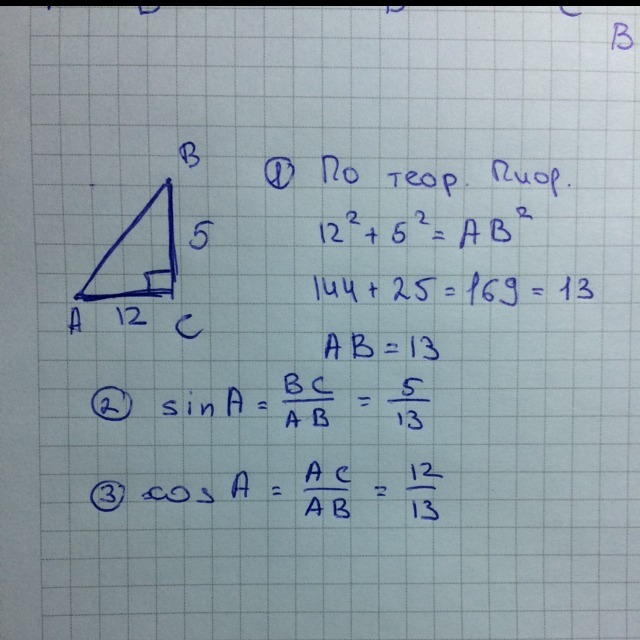 B
B
5
A 12 C
① По теор. Пиф.
12² + 5² = AB²
144 + 25 = 169 = 13
AB = 13
② sin A = BC/AB = 5/13
③ cos A = AC/AB = 12/13